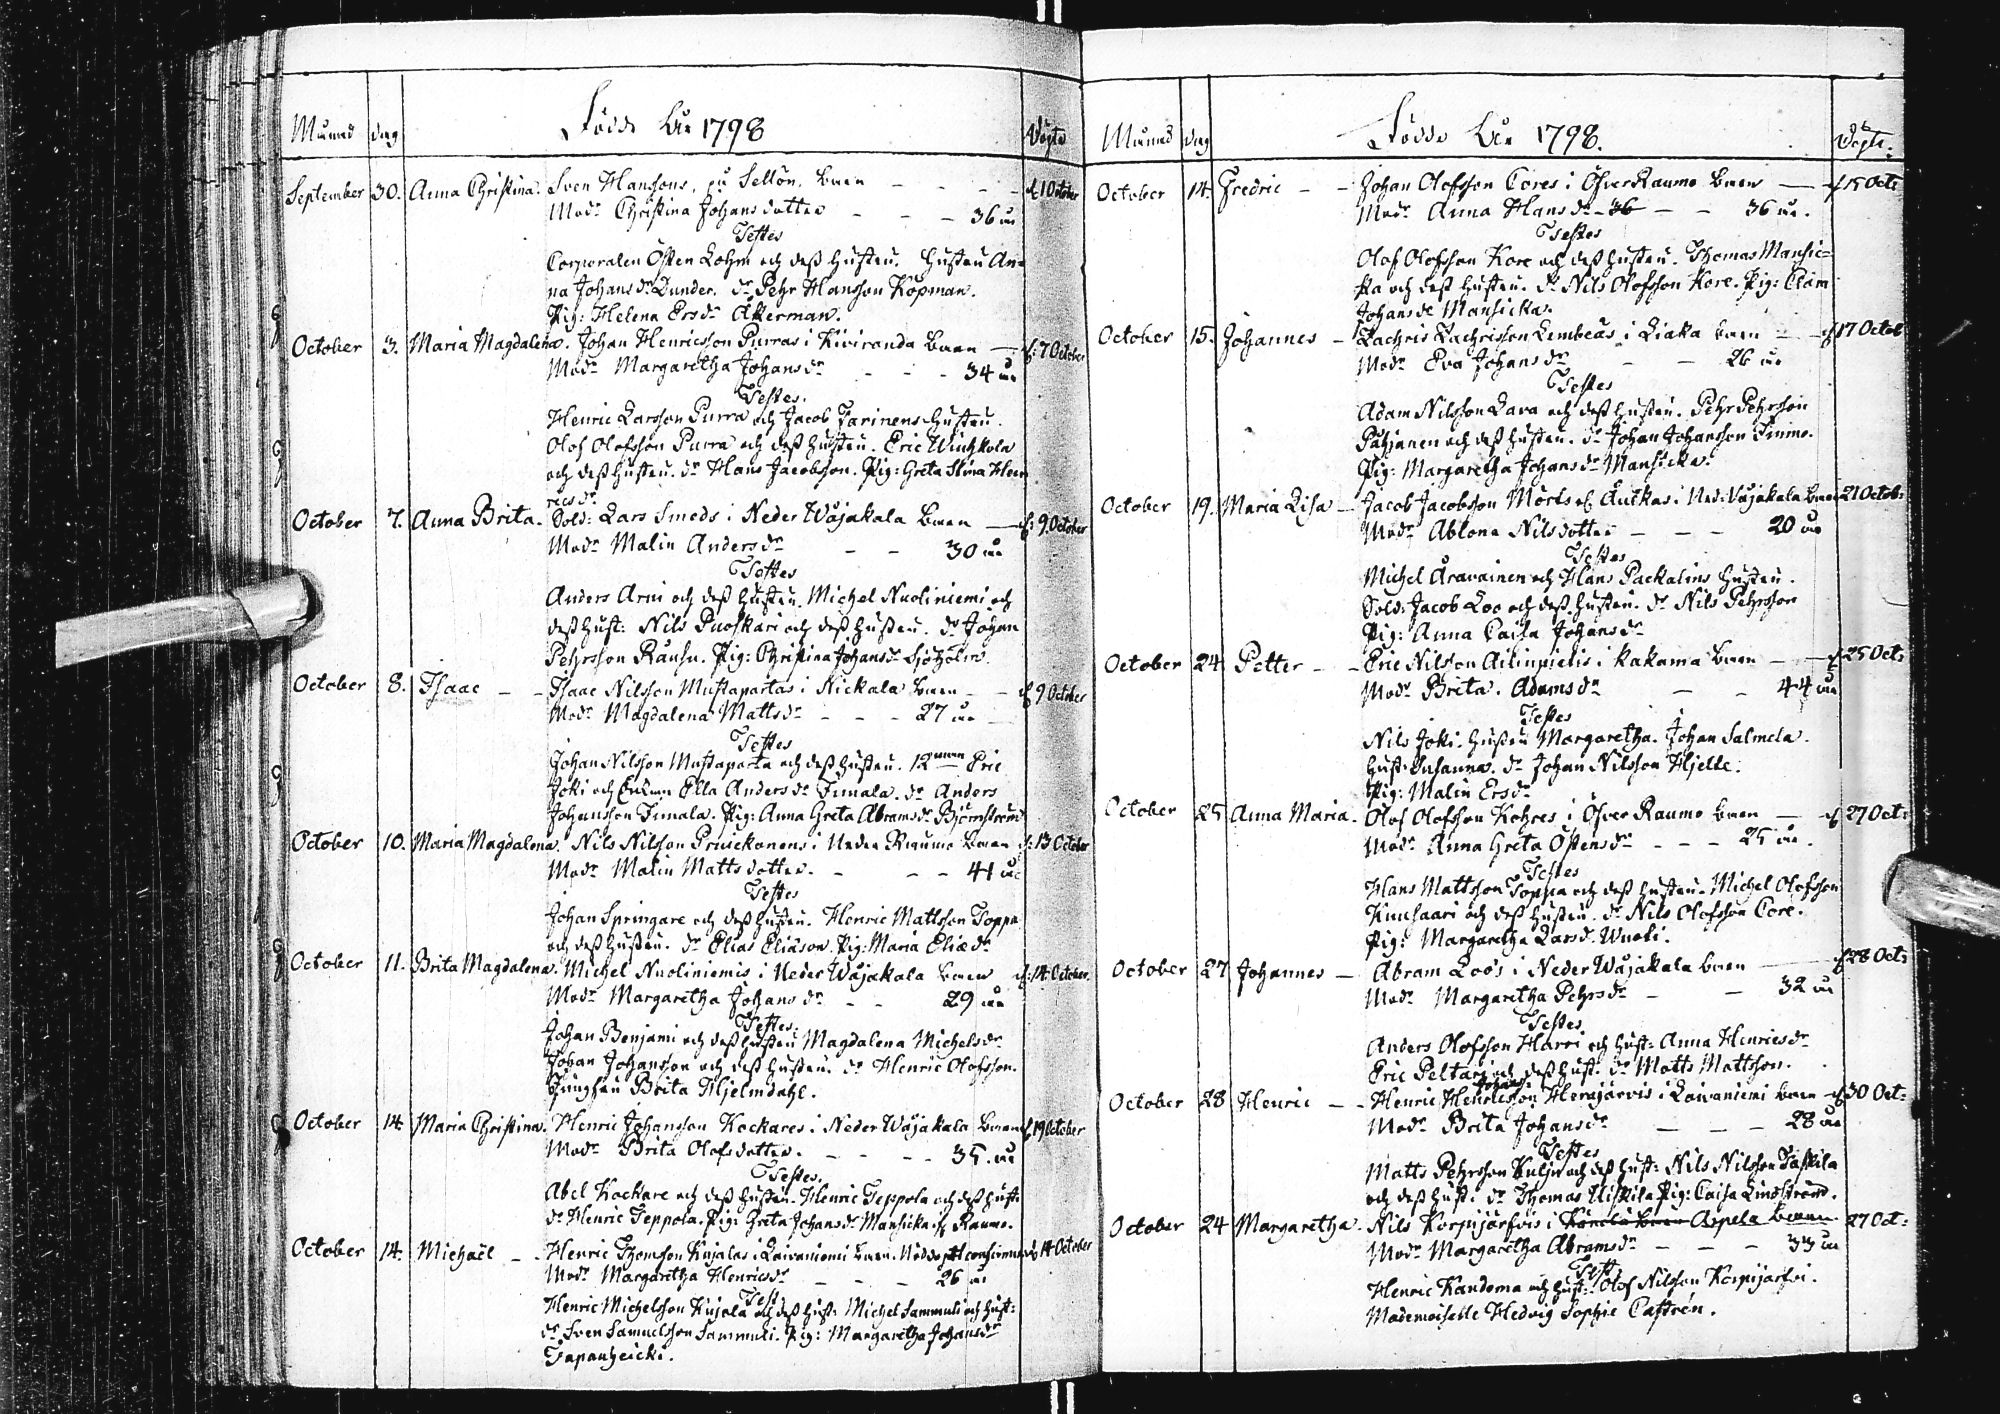 Månad dag Födde År 1798 Döpte
September 30. Anna Christina. Sven Hanssons, på Sellön. barn d. 1 October
Modr Christina Johansdotter 36 år
Testes
Corporalen Östen Bohm och dess hustru. hustru An-
na Johansdr Dunder. dr Pehr Hansson Köpman.
Pig: Helena Ersdr Åkerman.
October 3. Maria Magdalena. Johan Henricsson Purras i Kiviranda barn d. 7 October
Modr Margaretha Johansdr 34 år
Testes.
Henric Larsson Purra och Jacob Farinens hustru.
Olof Olofsson Purra och dess hustru. Eric
och dess hustru. dr Hans Jacobsson. Pig: Greta Stina Hen
ricsdr
October 7. Anna Brita. Sold: Lars Smeds i Neder Wåjakala barn d. 9 October
Modr Malin Andersdr 30 år
Testes
Anders Arni och dess hustru. Michel Nuoliniemi och
dess hust: Nils Puoskari och dess hustru. dr Johan
Pehrsson Rausu. Pig: Christina Johansdr Sjöholm
October 8. Isaac Isaac Nilsson Mustapartas i Nickala barn d. 9 October
Modr Magdalena Mattsdr 27 år
Testes
Johan Nilsson Mustaparta och dess hustru. Eric
Joki och Ella Andersdr Fumala. dr Anders
Johansson Fumala. Pig: Anna Greta Abramsdr Björnström
October 10. Maria Magdalena. Nils Nilsson Pruickonens i Neder Raumo barn d: 13 October
Modr Malin Mattsdotter. 41 år
Testes
Johan Springare och dess hustru. Henric Mattsson Toppa
och dess hustru. dr Elias Eliasson Pig: Maria Eliædr
October 11. Brita Magdalena. Michel Nuoliniemis i Neder Wåjakala barn d: 14 October.
Modr Margaretha Johansdr 29 år
Testes.
Johan Benjami och dess hustru Magdalena Michelsdr
Johan Johansson och dess hustru. dr Henric Olofsson.
Jungfru Brita Hjelmdahl.
October 14. Maria Christina. Henric Johansson Kockares i Neder Wåjakala barn d. 19 October
Modr Brita Olofsdotter. 35. år
Testes.
Abel Kockare och dess hustru. Henric Teppola och dess hust:
dr Henric Teppola. Pig: Greta Johansdr Mansicka Raumo.
October 14. Michaël Henric Thomsson Kujalas i Laivaniemi barn. Nöddopt confirmerad 14 October
Modr Margaretha Henricsdr 26 år
Test
Henric Michelsson Kujala och dess hust: Michel Sammuli och hust:
dr Sven Samuelsson Sammuli. Pig: Margaretha Johansdr
Tapanheicki.
Månad dag Födde År 1798. Döpte.
October 14. Fredric Johan Olofsson Cores i Öfver Raumo barn d 15 Oct:
Modr Anna Hansdr 36 36 år.
Testes
Olof Olofsson Kore och dess hustru. Thomas Mansic-
ka och dess hustru. dr Nils Olofsson Kore. Pig: Clara
Johansdr Mansicka.
October 15. Johannes Zachris Zachrisson Lembeäs i Liaka barn d 17 Octob
Modr Eva Johansdr 26 år
Testes
Adam Nilsson Lava och dess hustru. Pehr Pehrsson
Påhjanen och dess hustru. dr Johan Johansson Timmo.
Pig: Margaretha Johansdr Mansicka.
October 19. Maria Lisa Jacob Jacobsson Mörts el Autkas i Ned: Wåjakala barn 21 Octob:
Modr Ablona Nilsdotter 20 år
Testes
Michel Aravainen och Hans Packalins hustru.
Sold: Jacob Loo och dess hustru. dr Nils Pehrsson
Pig: Anna Caisa Johansdr
October 24 Petter Eric Nilsson Ailinpietis i Kakama barn d 25 Oct:
Modr Brita. Adamsdr 44 år
Testes
Nils Joki. hustru Margaretha. Johan Salmela.
Hust: Susanna. dr Johan Nilsson Hjelte.
Pig: Malin Ersdr
October 25 Anna Maria. Olof Olofsson Kohres i Öfver Raumo barn d 27 Oct:
Modr Anna Greta Östensdr 25 år.
Testes
Hans Mattsson Toppa och dess hustru. Michel Olofsson
Kuusaari och dess hustru. dr Nils Olofsson Core.
Pig: Margaretha Larsdr Wuoti.
October 27 Johannes Abram Loo's i Neder Wåjakala barn d 28 Oct:
Modr Margaretha Pehrsdr 32 år
Testes
Anders Olofsson Harri och hust: Anna Henricsdr
Eric Peltari och dess hust: dr Matts Mattsson.
Johans
October 28 Henric Henric Henricsson Herajärvis i Laivaniemi barn d 30 Oct:
Modr Brita Johansdr 28 år
Testes
Matts Pehrsson Kulju och dess hust: Nils Nilsson Taskila
och dess hust: dr Thomas Uiskila Pig: Caisa Lindström.
October 24 Margaretha. Nils Korpijärfvis i barn Aspela barn 27 Oct:
Modr Margaretha Abramsdr 33 år
Testes
Henric Kandoma och hust: Olof Nilsson Korpijärfvi.
Mademoiselle Hedvig Sophie Castrén.